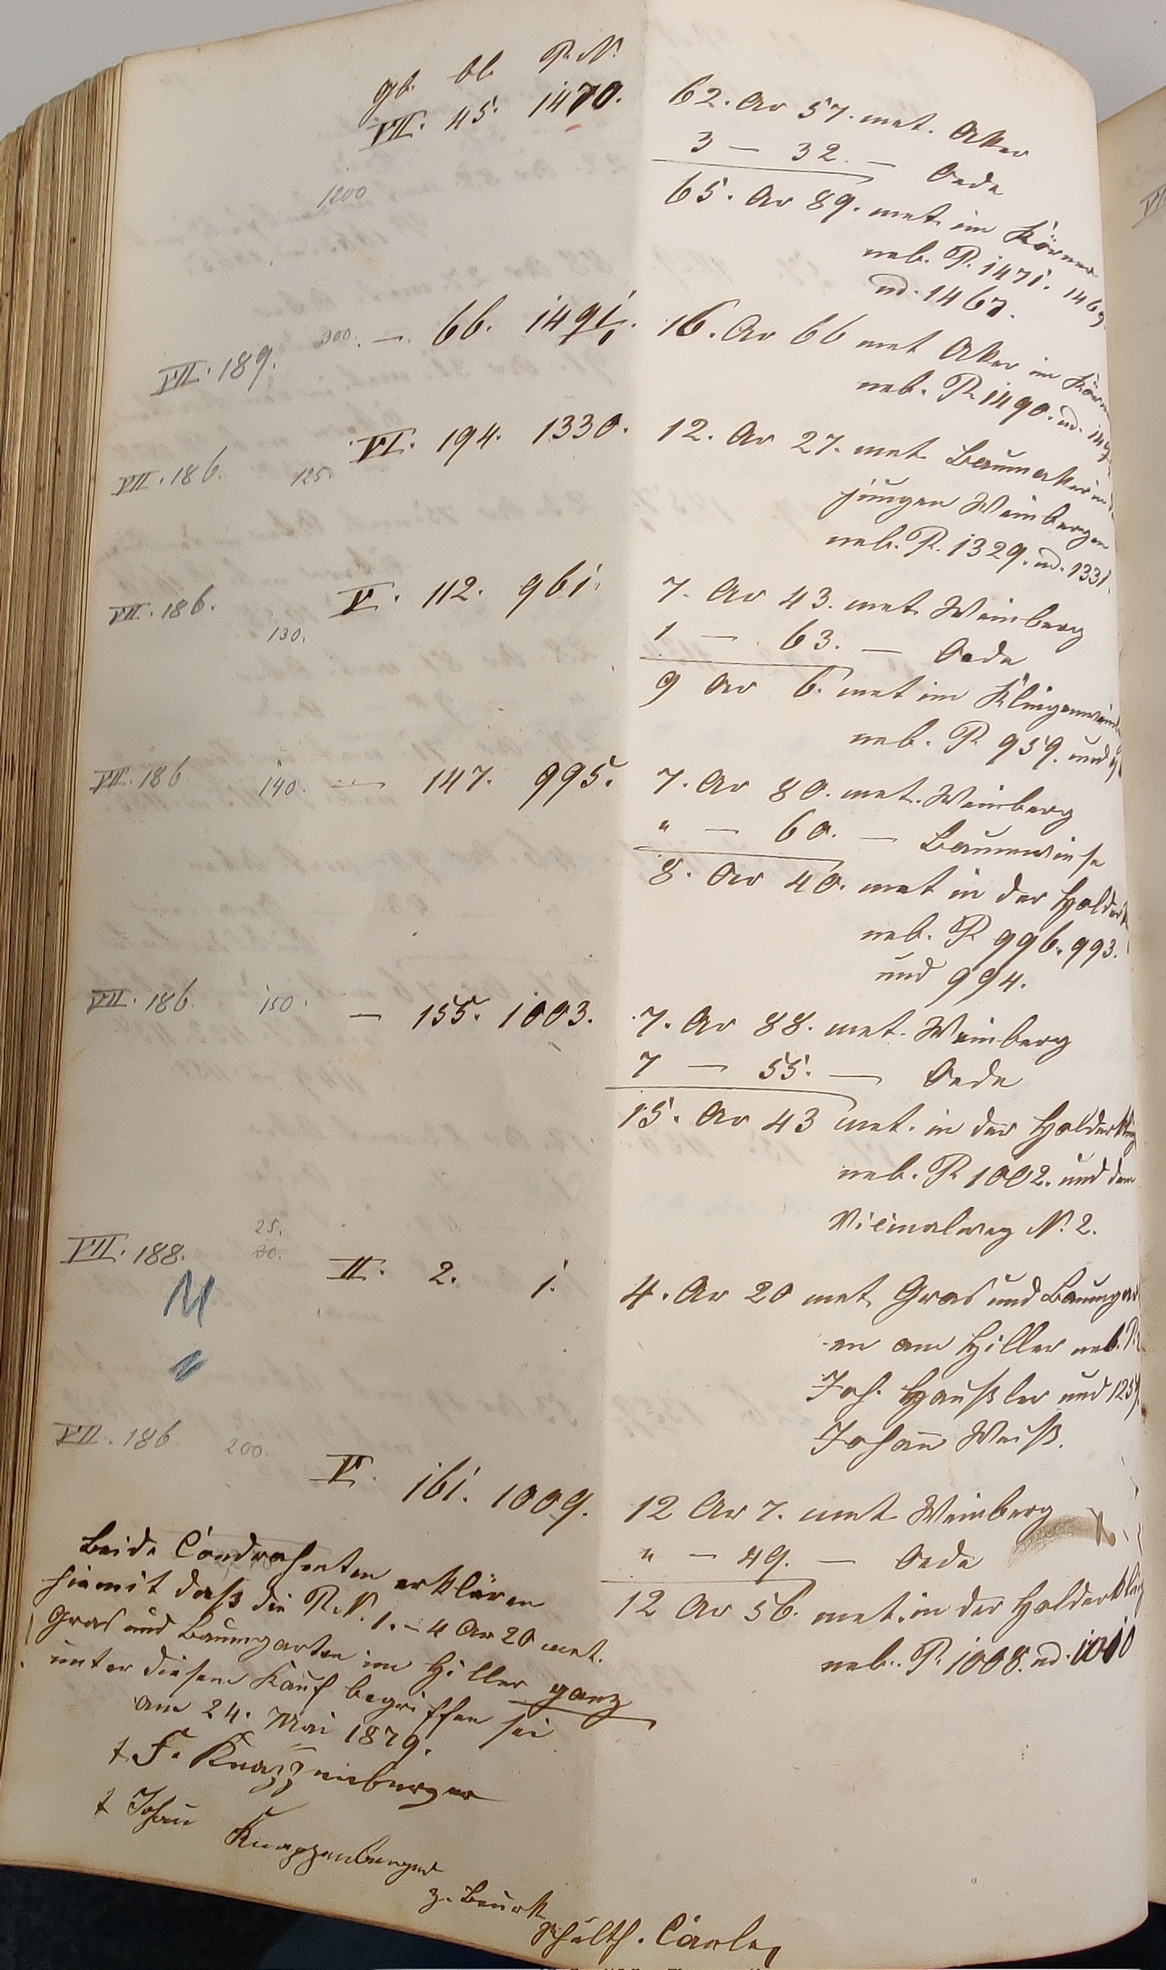 gb. bl. P. N.
VII. 45. 1470. 62. Ar 57. met. Aker
3 — 32. — Oede
1200
65. Ar 89. met. im Körner
neb. P. 1471. 1469
ud. 1467.
VII. 189. 300. — 66. 1491. 16. Ar 66 met Aker im
neb. P. 1490. ud.
VII. 186. 125. VI. 194. 1330. 12. Ar 27. met Baumaker
jungen Weinbergen
neb. P. 1329. ud. 1331.
VII. 186. 130. V. 112. 961. 7. Ar 43. met Weinberg
1 — 63. — Oede
9 Ar 6. met im
neb. P. 959. und
VII. 186 140. — 147. 995. 7. Ar 80. met. Weinberg
" — 60. — Baumwiese
8. Ar 40. met in der
neb. P. 996. 993.
und 994.
VII. 186. 150. — 155. 1003. 7. Ar 88. met. Weinberg
7 — 55. — Oede
15. Ar 43 met. in der
neb. P. 1002. und dem
Vicinalweg N. 2.
25.
VII. 188. 30. II. 2. 1. 4. Ar 20 met Gras und
en am Hiller neb.
Joh. Häußler und
Johann Weiß.
VII. 186 200. V. 161. 1009. 12 Ar 7. met Weinberg
" — 49. — Oede
12 Ar 56. met. in der
neb. P. 1008. ud. 1010
Beide Condrahenten erklären
hiemit daß die P. N. 1. — 4 Ar 20 met.
Gras und Baumgarten im Hiller ganz
unter diesem Kauf begriffen sei
am 24. Mai 1879.
t. F. Knapzenberger
t Johann Knapzenberger
z. Beurk
Schulth.